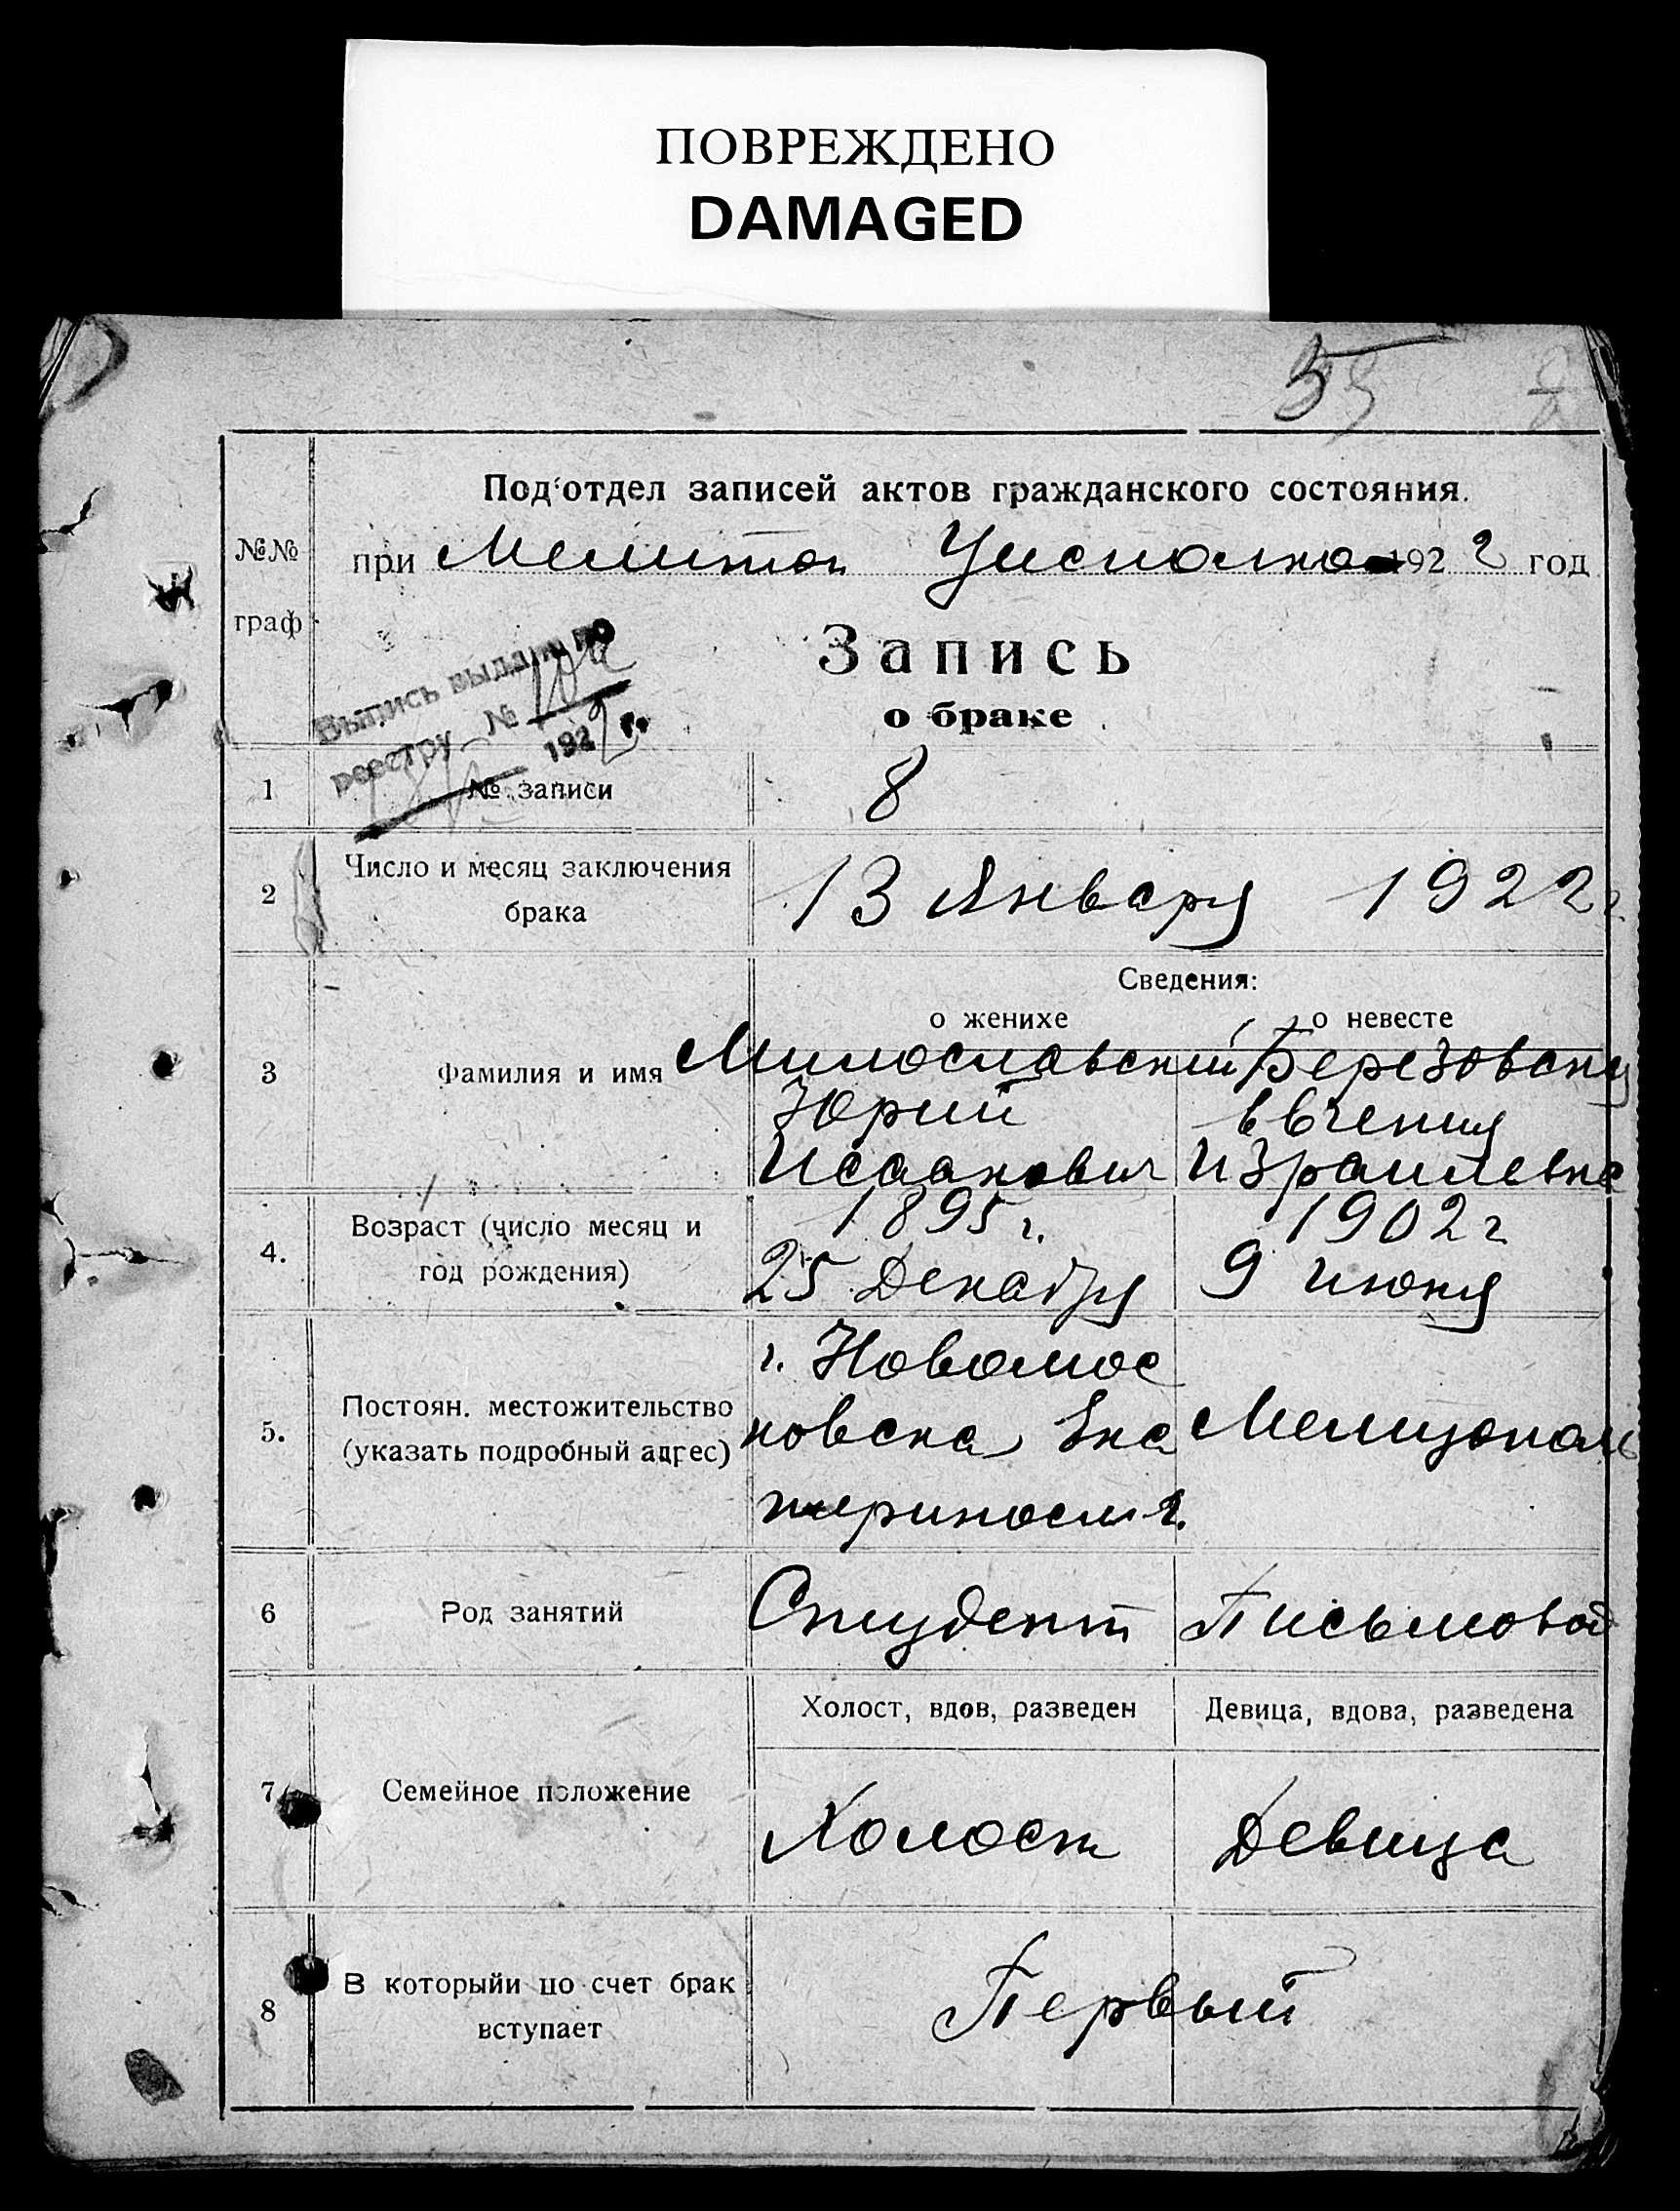 ПОВРЕЖДЕНО
DAMAGED
55
Под'отдел записей актов гражданского состояния.
№№ граф
при Мелитоп Уисполко 1922 год
Запись
о браке
Выпись выдана по
реестру №
192 г.
1 № записи 8
2 Число и месяц заключения брака 13 Января 1922 г.
Сведения:
о женихе о невесте
3 Фамилия и имя Милославский Березовская
Юрий Евгения
Исаакович Израилевна
4. Возраст (число месяц и год рождения) 1895 г. 1902 г
25 Декабря 9 июня
5. Постоян. местожительство (указать подробный адрес)
г. Новомос
ковска Ека Мелитополь
териносл г.
6 Род занятий Студент Письмовод
Холост, вдов, разведен Девица, вдова, разведена
7 Семейное положение Холост Девица
8 В которыйи по счет брак вступает Первый